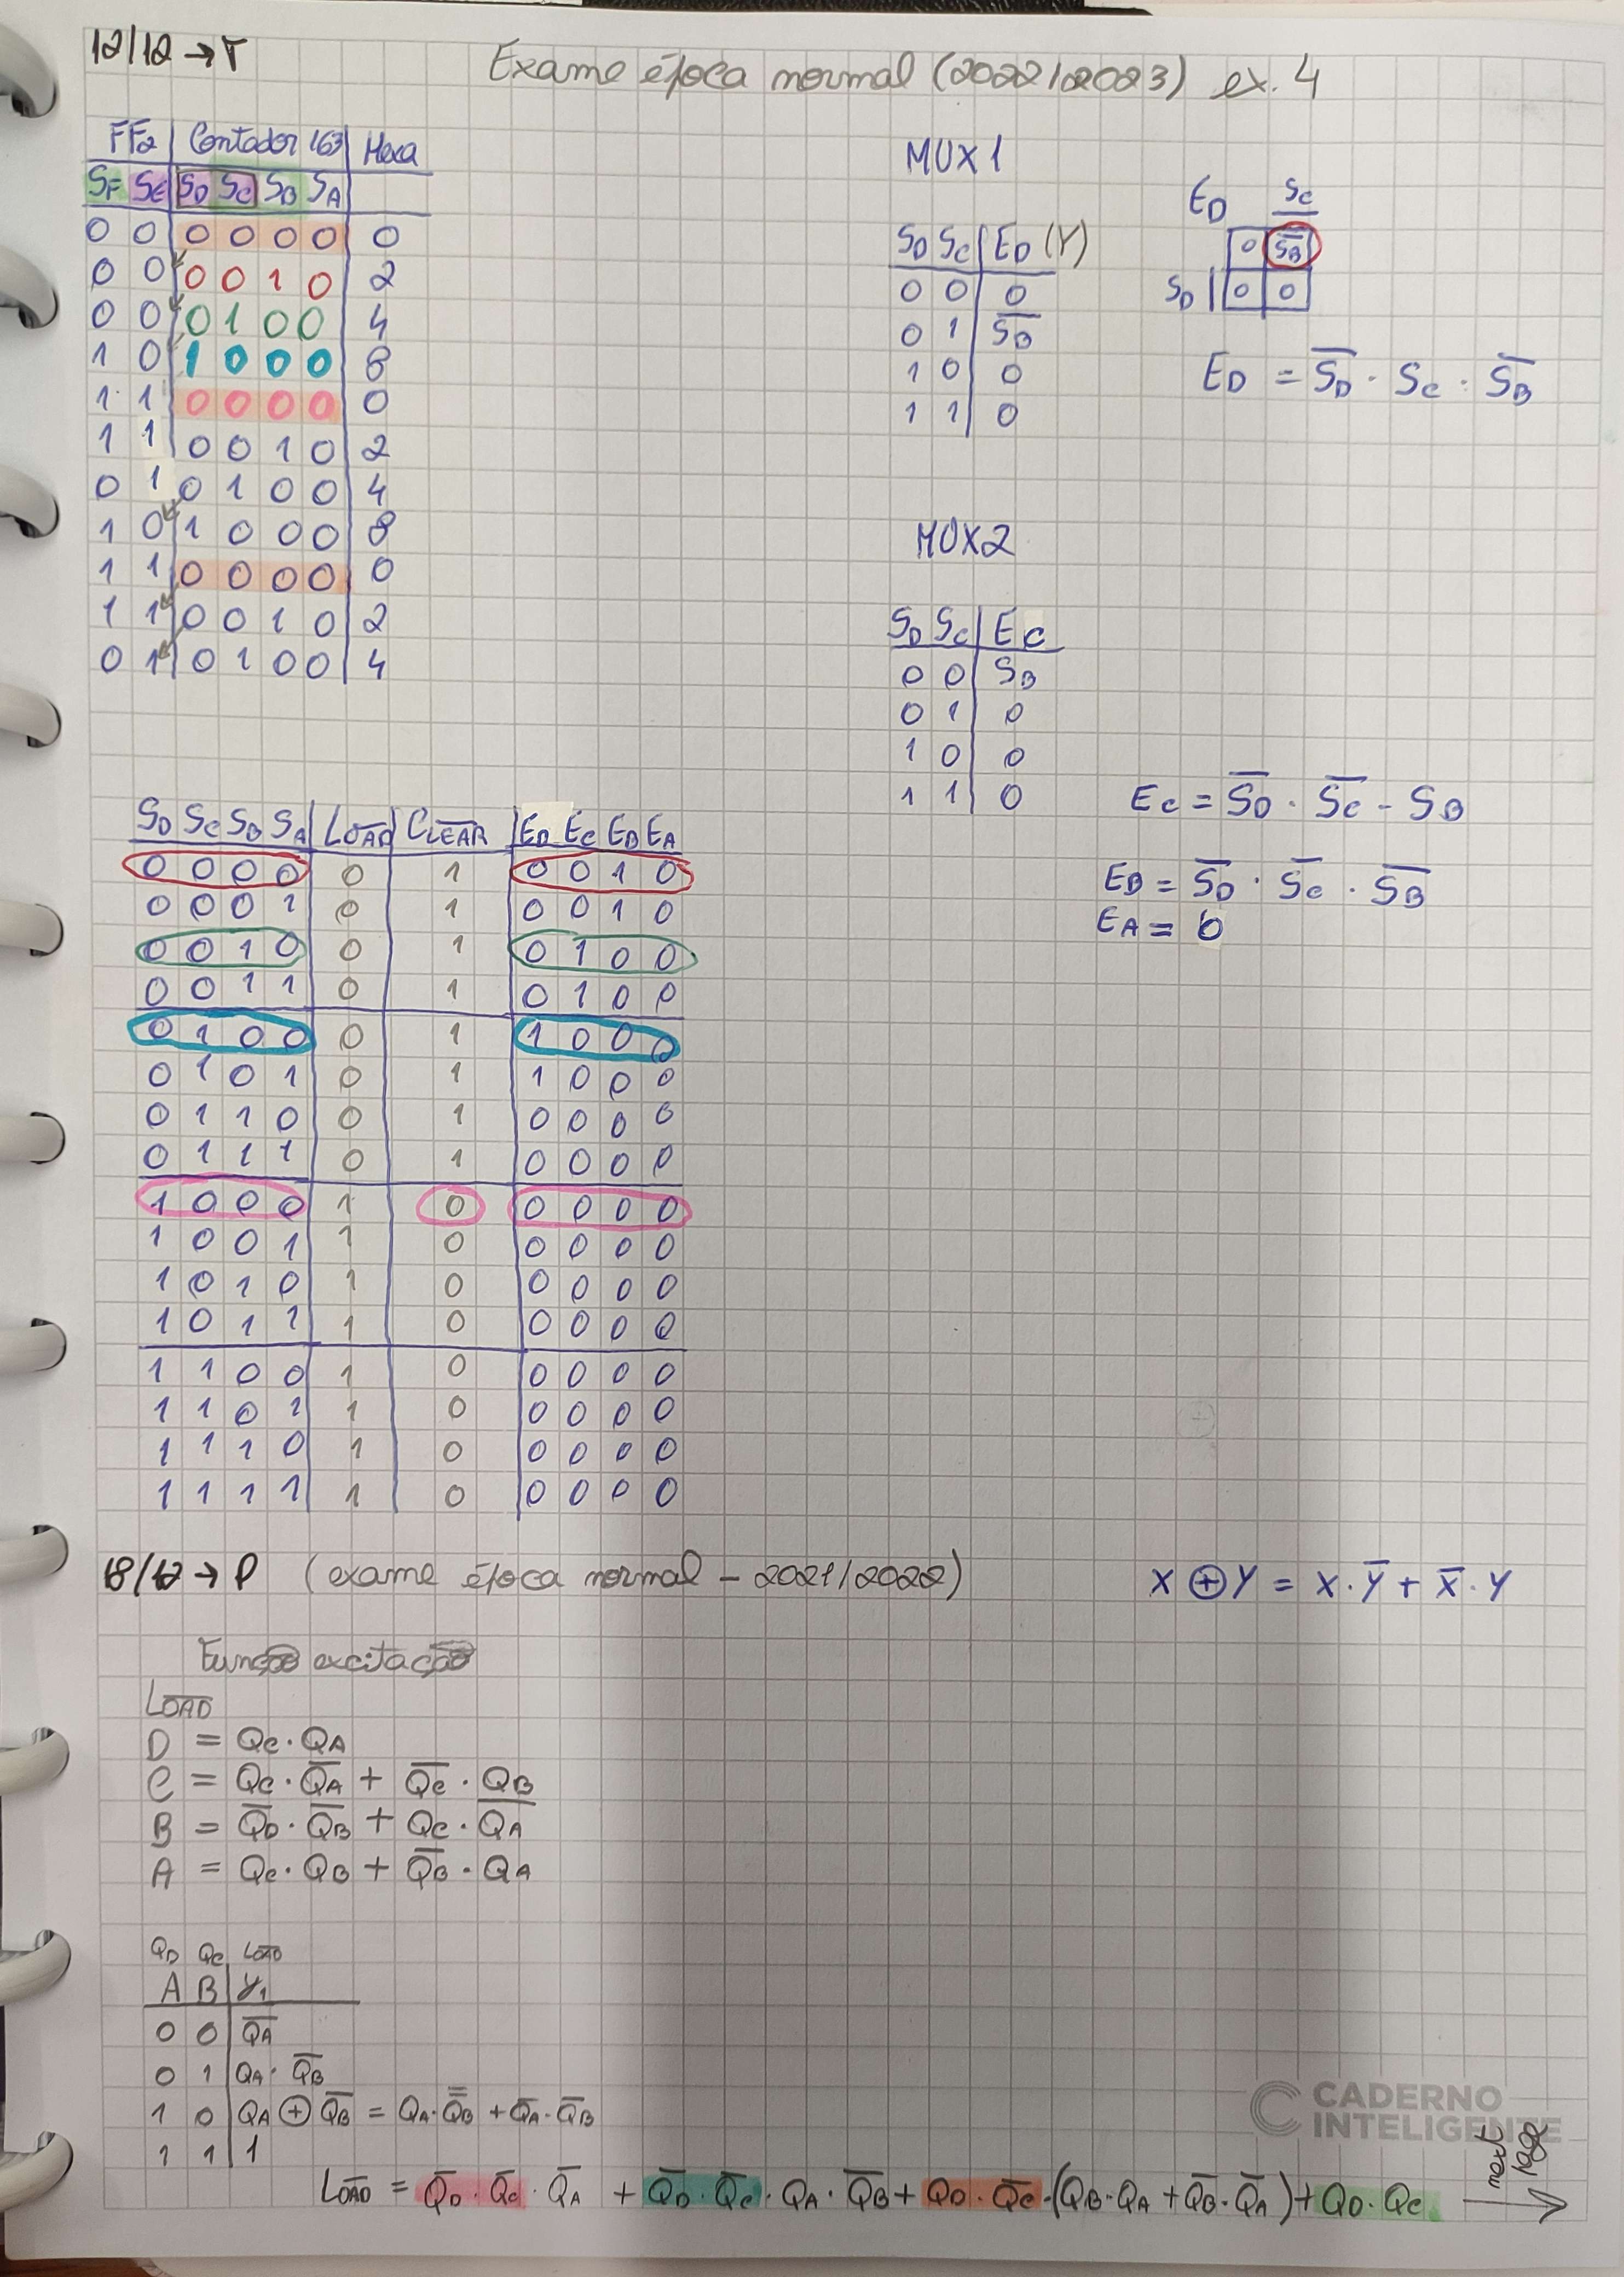 12/12 → T
Exame época normal (2022/2023) ex. 4
FF2 | Contador 163 | Hexa
SF SE | SD SC SB SA |
0 0 | 0 0 0 0 | 0
0 0 | 0 0 1 0 | 2
0 0 | 0 1 0 0 | 4
1 0 | 1 0 0 0 | 8
1 1 | 0 0 0 0 | 0
1 1 | 0 0 1 0 | 2
0 1 | 0 1 0 0 | 4
1 0 | 1 0 0 0 | 8
1 1 | 0 0 0 0 | 0
1 1 | 0 0 1 0 | 2
0 1 | 0 1 0 0 | 4
MUX 1
SD SC | ED (Y)
0 0 | 0
0 1 | S̅B̅
1 0 | 0
1 1 | 0
ED SC
0 S̅B̅
SD | 0 0
ED = S̅D̅ · SC · S̅B̅
MUX2
SD SC | EC
0 0 | SB
0 1 | 0
1 0 | 0
1 1 | 0
EC = S̅D̅ · S̅C̅ - SB
EB = S̅D̅ · S̅C̅ · S̅B̅
EA = 0
SD SC SB SA | L̅O̅A̅D̅ | C̅L̅E̅A̅R̅ | ED EC EB EA
0 0 0 0 | 0 | 1 | 0 0 1 0
0 0 0 1 | 0 | 1 | 0 0 1 0
0 0 1 0 | 0 | 1 | 0 1 0 0
0 0 1 1 | 0 | 1 | 0 1 0 0
0 1 0 0 | 0 | 1 | 1 0 0 0
0 1 0 1 | 0 | 1 | 1 0 0 0
0 1 1 0 | 0 | 1 | 0 0 0 0
0 1 1 1 | 0 | 1 | 0 0 0 0
1 0 0 0 | 1 | 0 | 0 0 0 0
1 0 0 1 | 1 | 0 | 0 0 0 0
1 0 1 0 | 1 | 0 | 0 0 0 0
1 0 1 1 | 1 | 0 | 0 0 0 0
1 1 0 0 | 1 | 0 | 0 0 0 0
1 1 0 1 | 1 | 0 | 0 0 0 0
1 1 1 0 | 1 | 0 | 0 0 0 0
1 1 1 1 | 1 | 0 | 0 0 0 0
18/12 → P (exame época normal - 2021/2022)
X ⊕ Y = X · Y̅ + X̅ · Y
Função excitação
L̅O̅A̅D̅
D = QC · QA
C = QC · Q̅A̅ + Q̅C̅ · QB
B = Q̅D̅ · Q̅B̅ + QC · Q̅A̅
A = QC · QB + Q̅B̅ · QA
QD QC L̅O̅A̅D̅
A B | Y1
0 0 | Q̅A̅
0 1 | QA · Q̅B̅
1 0 | QA ⊕ Q̅B̅ = QA · Q̿B̿ + Q̅A̅ · Q̅B̅
1 1 | 1
L̅O̅A̅D̅ = Q̅D̅ · Q̅C̅ · Q̅A̅ + Q̅D̅ · Q̅C̅ · QA · Q̅B̅ + QD · Q̅C̅ · (QB · QA + Q̅B̅ · Q̅A̅) + QD · QC
next page
CADERNO
INTELIGENTE